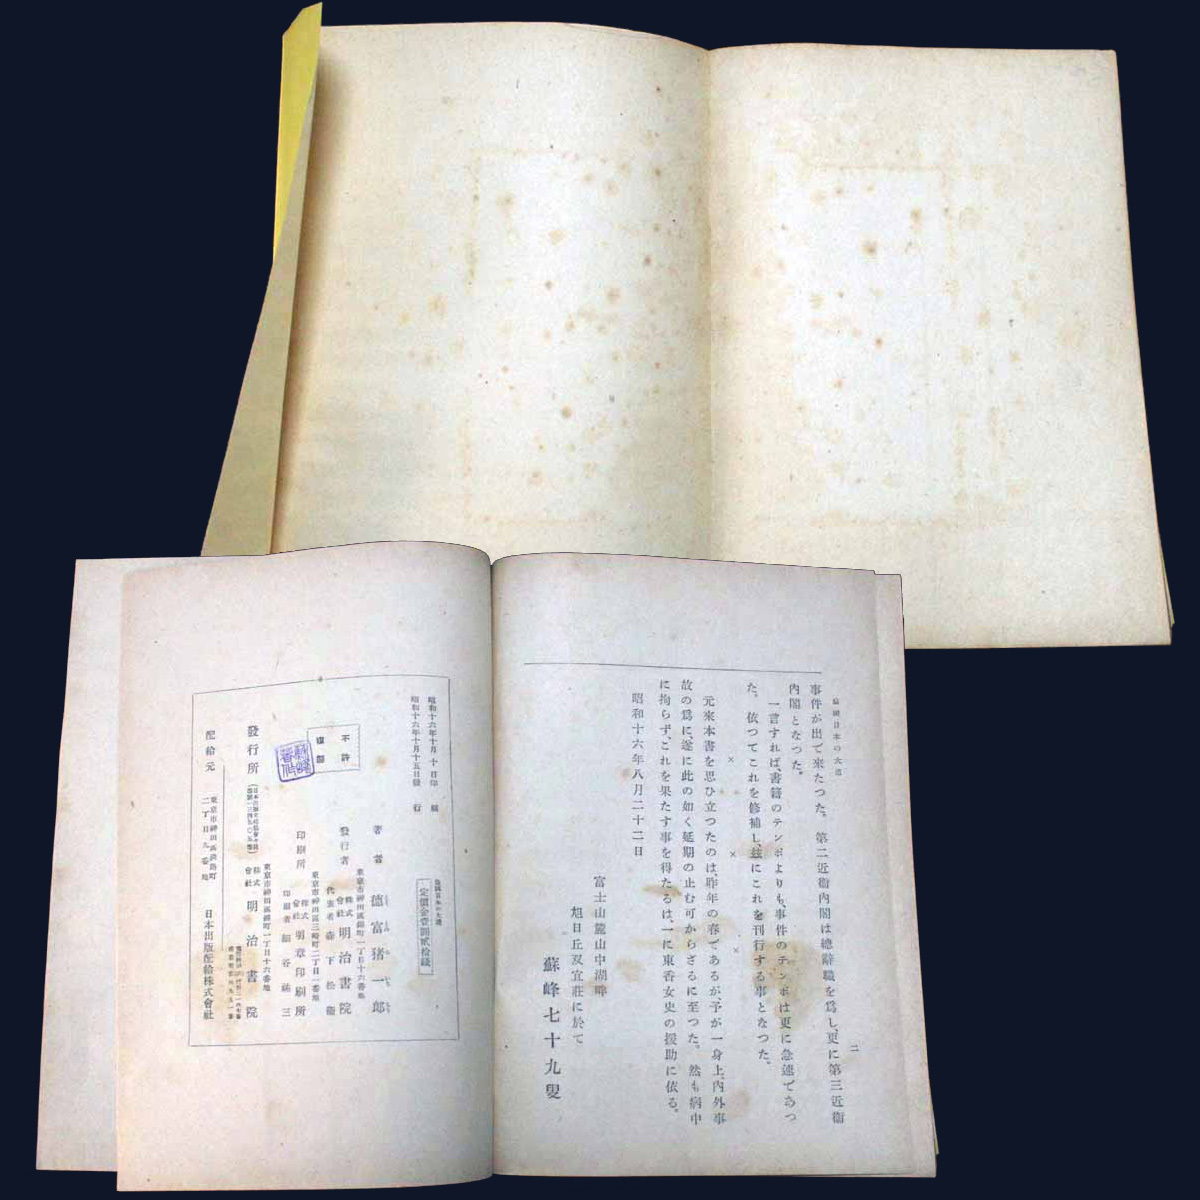 皇國日本の大道
二
事件が出で來たつた。第二近衞內閣は總辭職を爲し、更に第三近衞
內閣となつた。
一言すれば、書籍のテンポよりも、事件のテンポは更に急速であつ
た。依つてこれを修補し、玆にこれを刊行する事となつた。
× × ×
元來本書を思ひ立つたのは、昨年の春であるが、予が一身上、內外事
故の爲に、遂に此の如く延期の止む可からざるに至つた。然も病中
に拘らず、これを果たす事を得たるは、一に東香女史の援助に依る。
昭和十六年八月二十二日
富士山麓山中湖畔
旭日丘双宜莊に於て
蘇峰七十九叟
皇國日本の大道
定價金壹圓貳拾錢
昭和十六年十月十日印刷
昭和十六年十月十五日發行
不許複製
著者 德富猪一郎
東京市神田區錦町一丁目十六番地
發行者 株式會社 明治書院
代表者 森下松衞
東京市神田區三崎町二丁目番地
印刷所 株式會社 明章印刷所
印刷者 細谷
東京市神田區錦町一丁目十六番地
發行所 株式會社 明治書院
東京市神田區淡路町二丁目九番地
配給元 日本出版配給株式會社